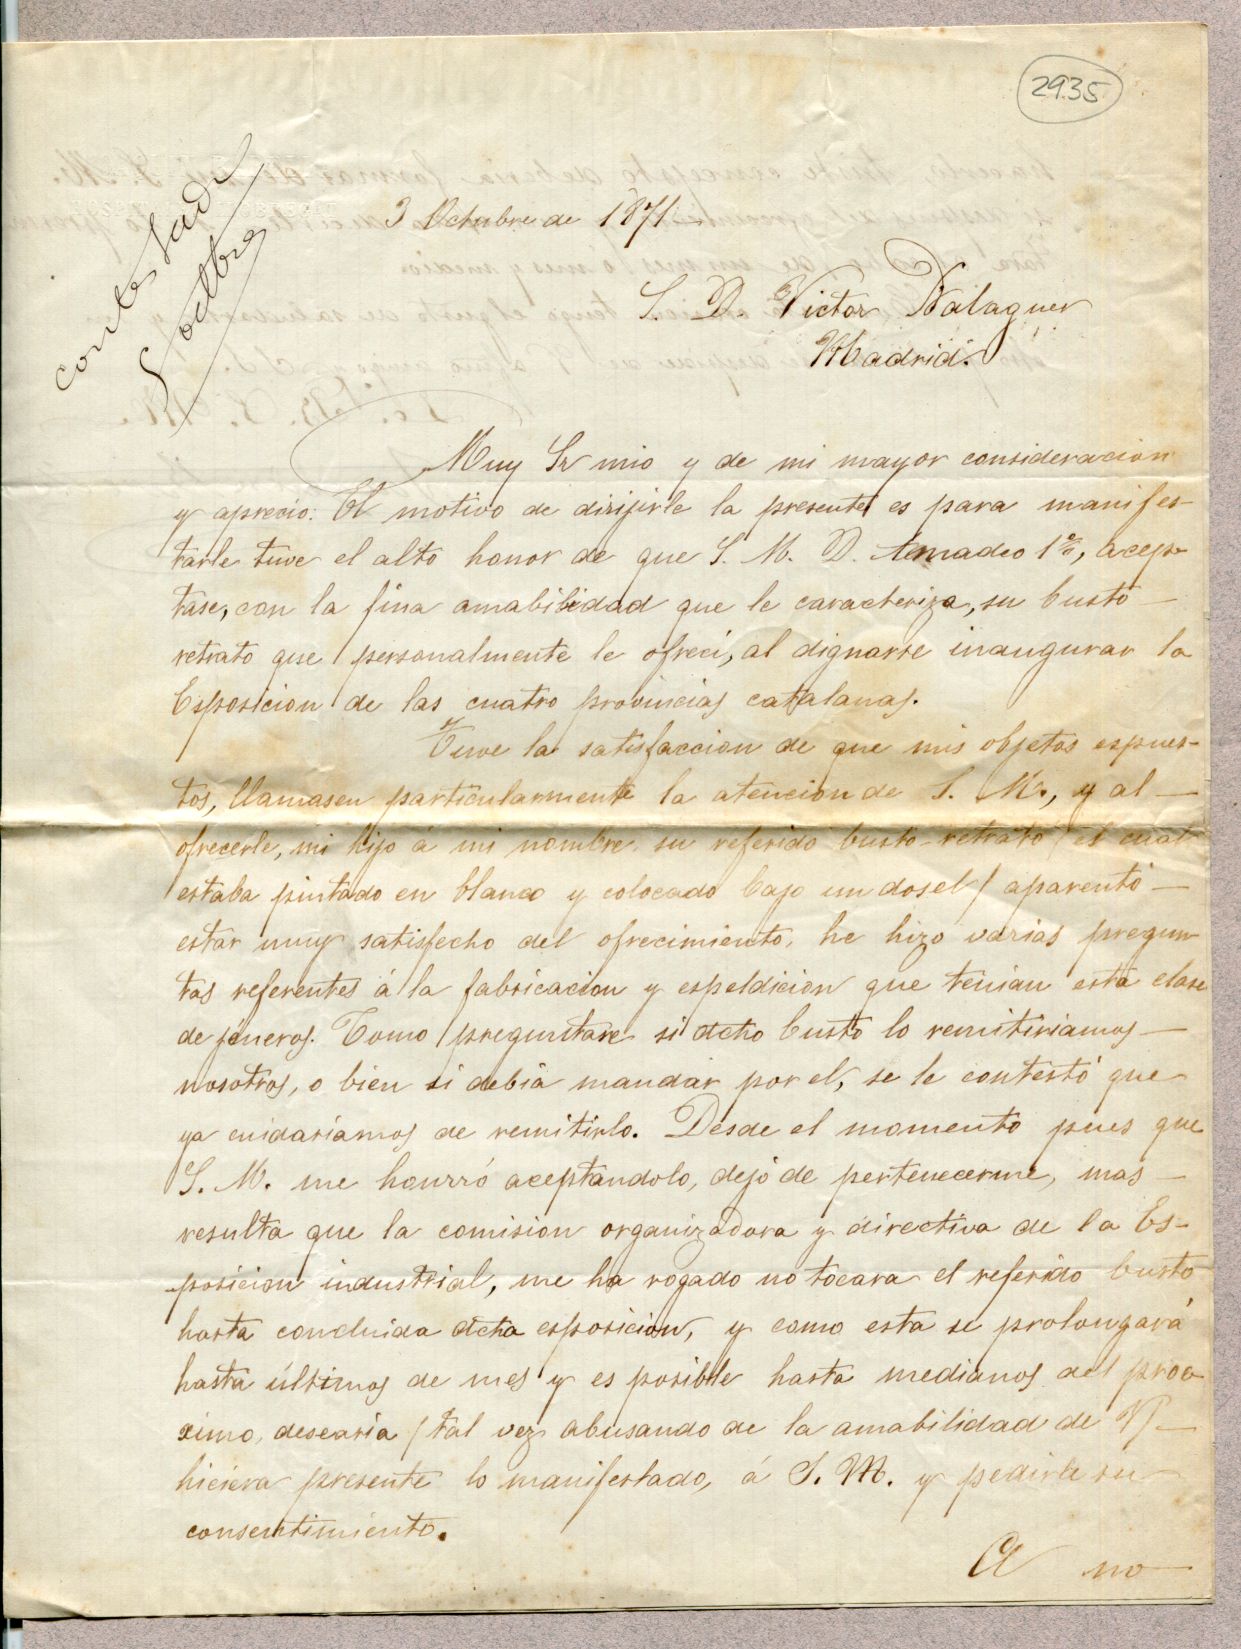 2935
contestada
5 octbre
3 Octubre de 1871
S. D. Victor Balaguer
Madrid.
Muy Sr mio y de mi mayor consideracion
y aprecio: El motivo de dirijirle la presente es para manifes-
tarle tuve el alto honor de que S. M. D. Amadeo 1º, acep-
tase, con la fina amabilidad que le caracteriza, su busto
retrato que personalmente le ofreci, al dignarse inaugurar la
Esposicion de las cuatro provincias catalanas.
Tuve la satisfaccion de que mis objetos espues-
tos, llamasen particularmente la atencion de S. M., y al
ofrecerle, mi hijo á mi nombre su referido busto-retrato (el cual
estaba pintado en blanco y colocado bajo un dosel) aparentó
estar muy satisfecho del ofrecimiento, he hizo varias pregun-
tas referentes á la fabricacion y espeldicion que tenian esta clase
de jéneros. Como preguntare si dcho busto lo remitiriamos
nosotros, o bien si debia mandar por el, se le contestó que
ya cuidariamos de remitirlo. Desde el momento pues que
S. M. me honrró aceptandolo, dejó de pertenecerme, mas
resulta que la comision organizadora y directiva de la Es-
posicion industrial, me ha rogado no tocara el referido busto
hasta concluida dcha esposicion, y como esta se prolongará
hasta últimos de mes y es posible hasta medianos del proc-
simo, desearia (tal vez abusando de la amabilidad de V)
hiciera presente lo manifestado, á S. M. y pedirle su
consentimiento.
A no